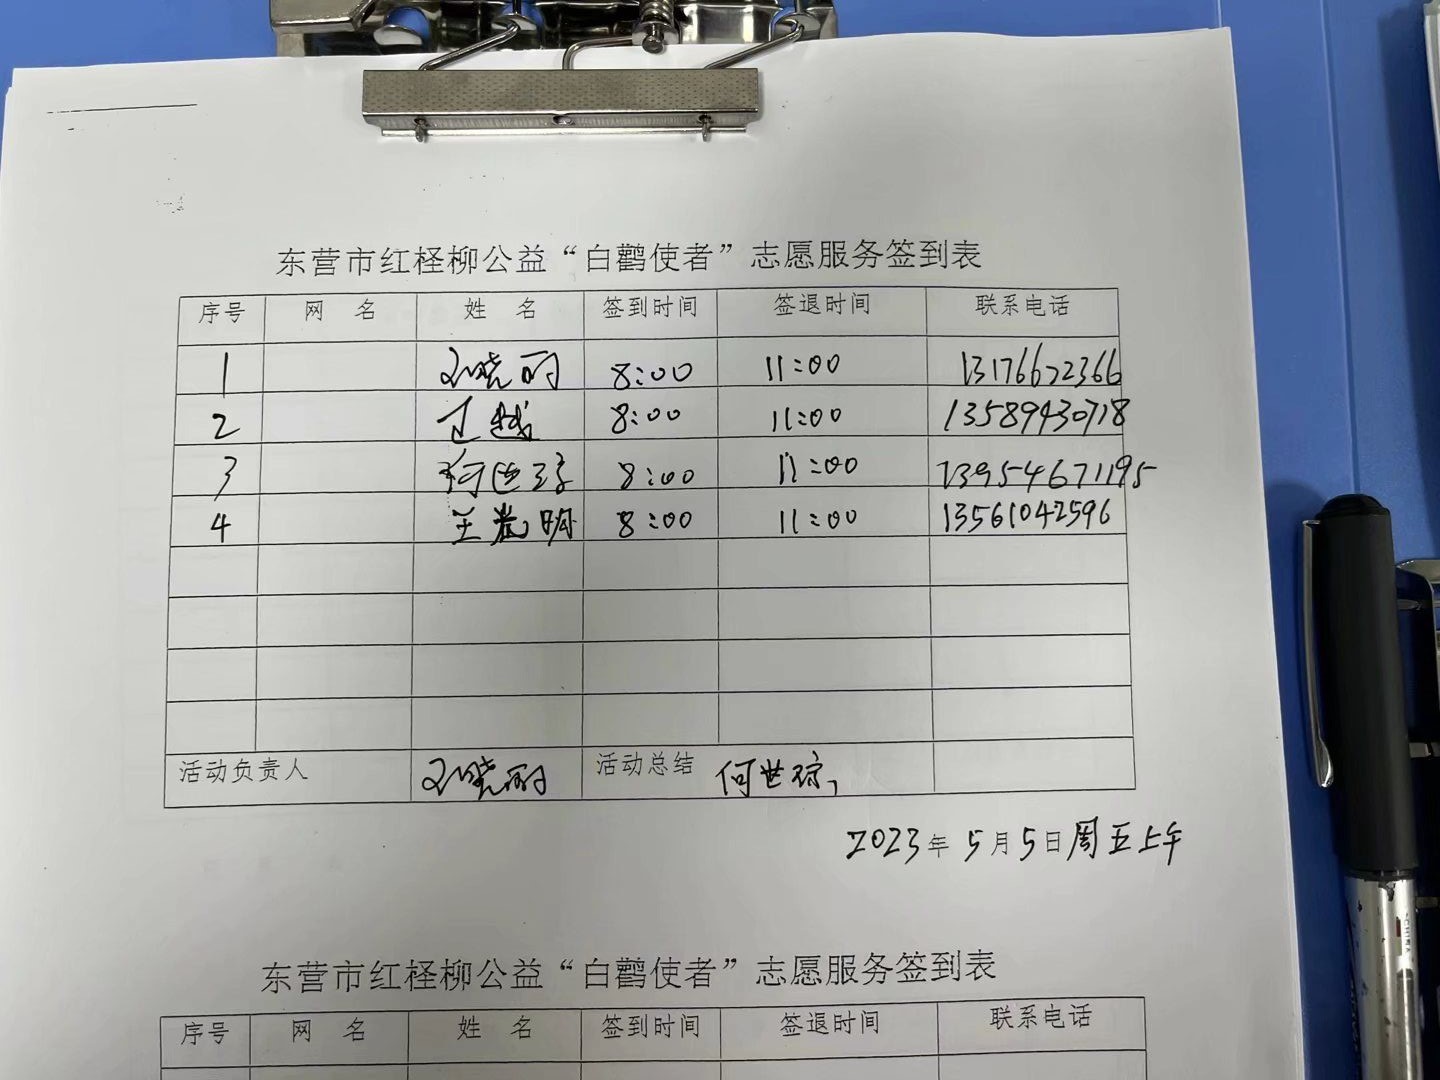 东营市红柽柳公益“白鹳使者”志愿服务签到表
序号 网 名 姓 名 签到时间 签退时间 联系电话
1 刘晓丽 8:00 11:00 13176672366
2 8:00 11:00 13589430718
3 何世琼 8:00 11:00 13954671195
4 王 明 8:00 11:00 13561042596
活动负责人 刘晓丽 活动总结 何世琼
2023年 5月5日周五上午
东营市红柽柳公益“白鹳使者”志愿服务签到表
序号 网 名 姓 名 签到时间 签退时间 联系电话